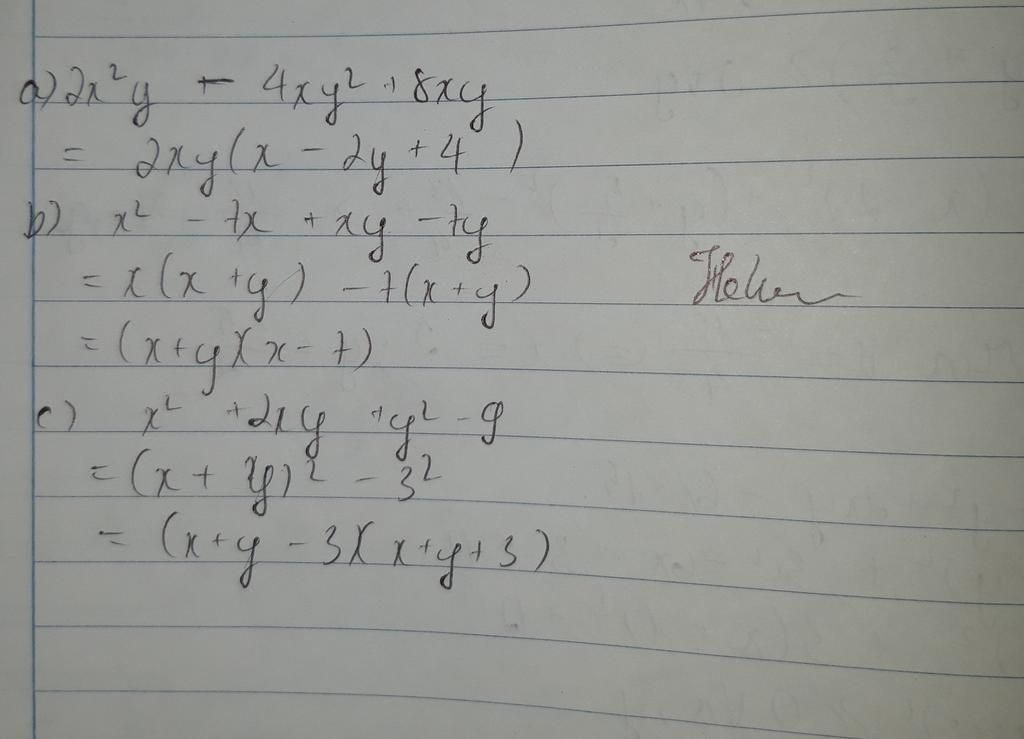 a) 2x²y - 4xy² + 8xy
= 2xy(x - 2y + 4)
b) x² - 7x + xy - 7y
= x(x + y) - 7(x + y)
= (x + y)(x - 7)
c) x² + 2xy + y² - 9
= (x + y)² - 3²
= (x + y - 3)(x + y + 3)